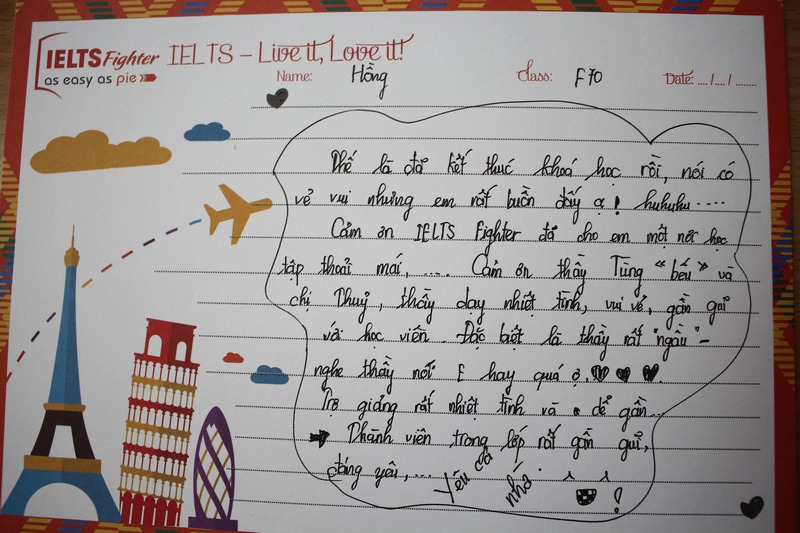 IELTS Fighter IELTS – Live it, Love it!
as easy as pie
Name: Hồng Class: F70 Date: ..../..../........
Thế là đã kết thúc khoá học rồi, nói có
vẻ vui nhưng em rất buồn đấy ạ! huhuhu....
Cảm ơn IELTS Fighter đã cho em một nơi học
tập thoải mái,.... Cảm ơn thầy Tùng "béu" và
chị Thuỷ, thầy dạy nhiệt tình, vui vẻ, gần guĩ
với học viên. Đặc biệt là thầy rất "ngầu" -
nghe thầy nói E hay quá ợ.
Trợ giảng rất nhiệt tình và dễ gần...
Thành viên trong lớp rất gần guĩ,
đáng yêu,....
Yêu cả
nhà